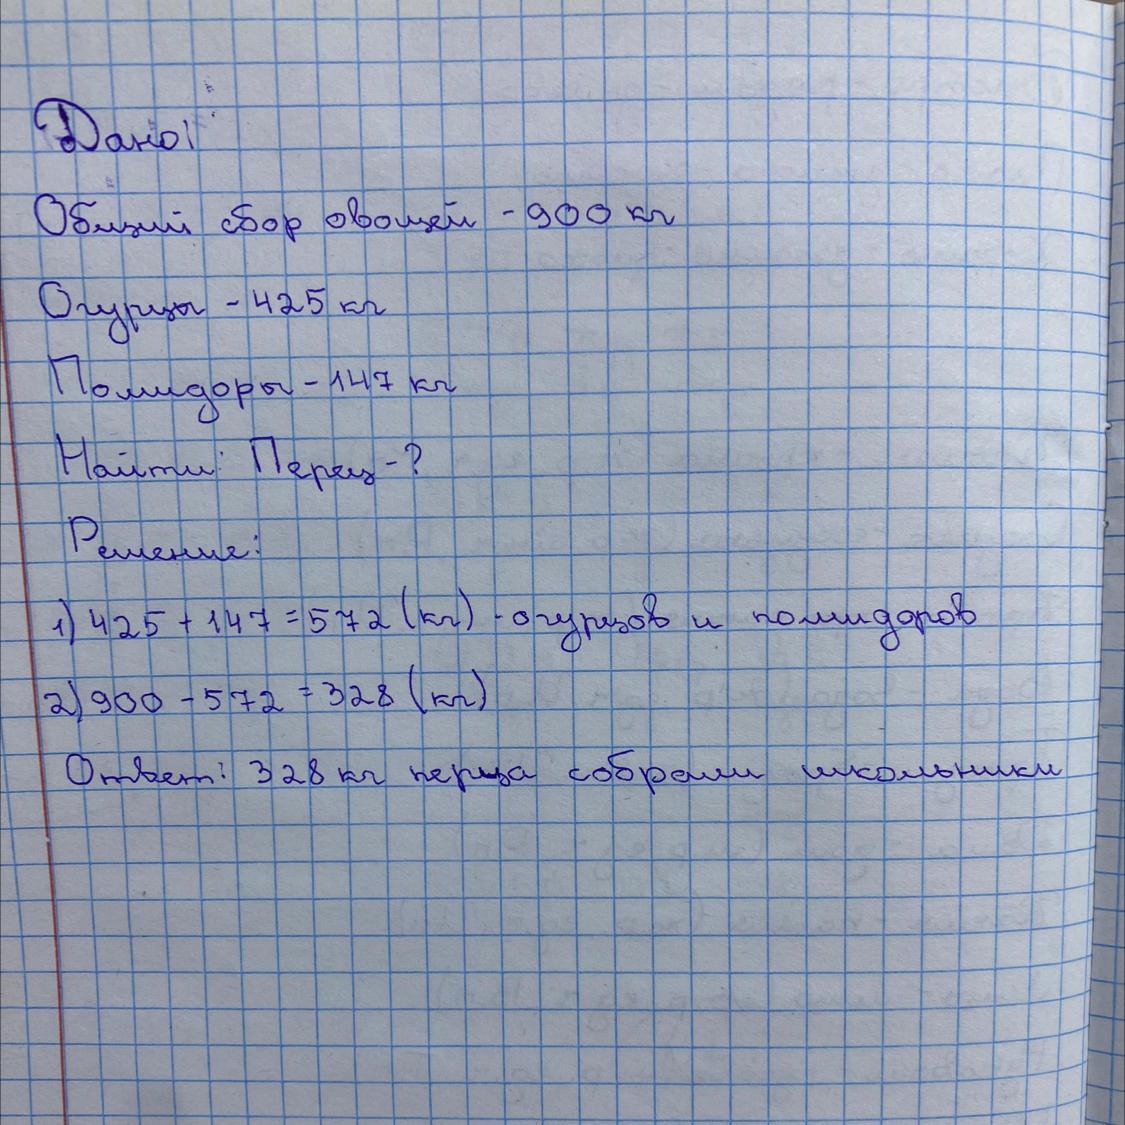 Дано:
Общий сбор овощей - 900 кг
Огурцы - 425 кг
Помидоры - 147 кг
Найти: Перец - ?
Решение:
1) 425 + 147 = 572 (кг) - огурцов и помидоров
2) 900 - 572 = 328 (кг)
Ответ: 328 кг перца собрали школьники